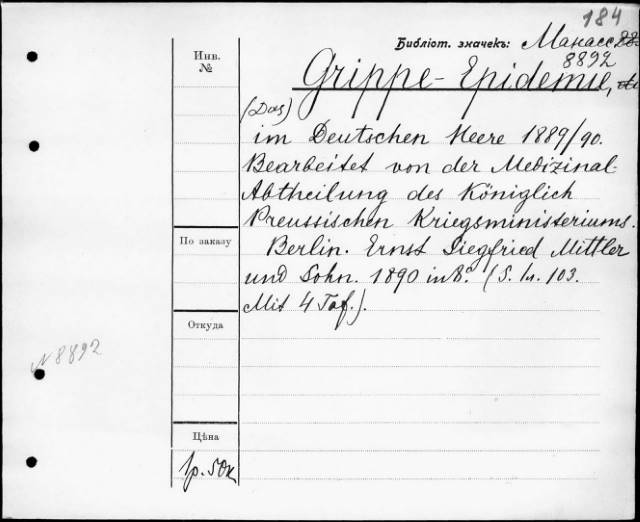 184
Библіот. значекъ: Манасс.
8892
Инв.
№
Grippe-Epidemie,
(Das)
im Deutschen Heere 1889/90.
Bearbeitet von der Medizinal-
Abtheilung des Königlich
Preussischen Kriegsministeriums.
По заказу
Berlin. Ernst Siegfried Mittler
und Sohn. 1890 in 8.° (S. 103.
Mit 4 Taf.).
Откуда
N 8892
Цѣна
1р. 50к